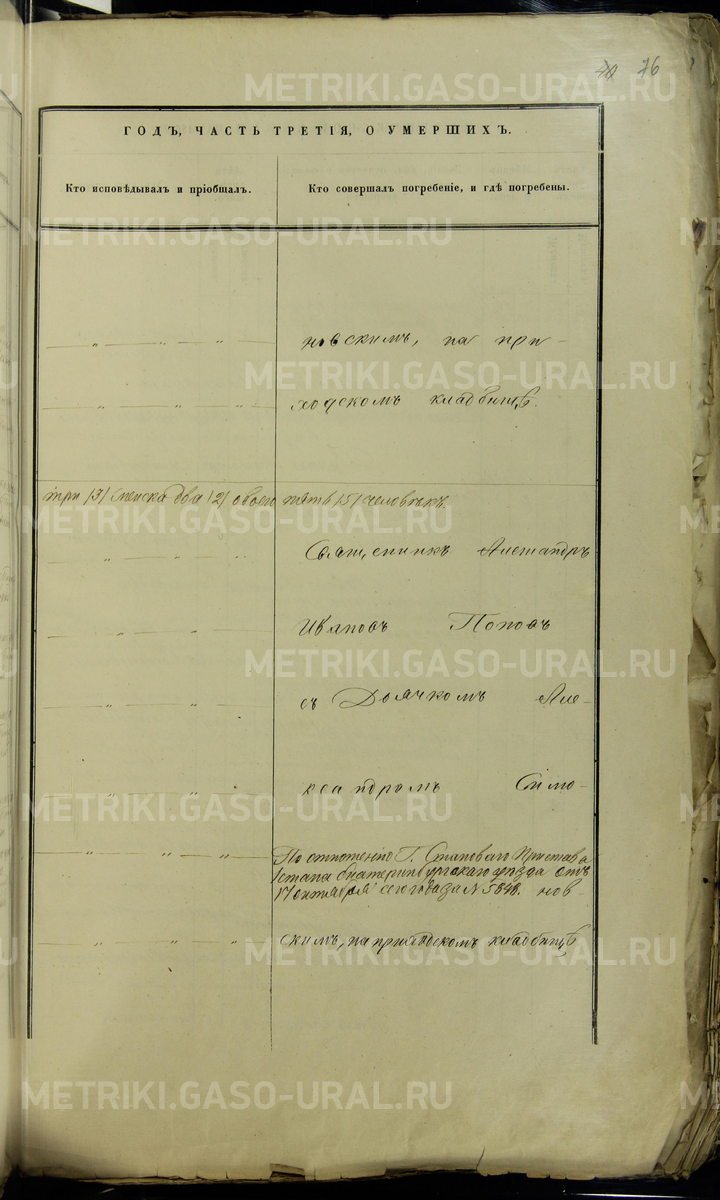 76
ГОДЪ, ЧАСТЬ ТРЕТІЯ, О УМЕРШИХЪ.
Кто исповѣдывалъ и пріобщалъ.
Кто совершалъ погребеніе, и гдѣ погребены.
новскимъ, на при-
ходскомъ кладбищѣ.
три /3/ женска два /2/ обоего пять /5/ человѣкъ.
Священникъ Александръ
Ивановъ Поповъ
съ Дьячкомъ Але-
ксандромъ Симо-
По отношенію Г. Становаго Пристава
1 стана Екатеринбургскаго уѣзда отъ
17 октября сего года за № 5848. нов-
скимъ, на приходскомъ кладбищѣ
METRIKI.GASO-URAL.RU